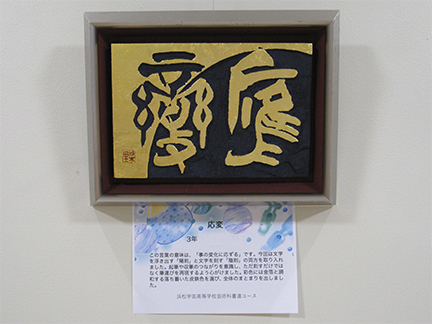 應變
応変
3年
この言葉の意味は、「事の変化に応ずる」です。今回は文字
を浮き出す「陽刻」と文字を刻す「陰刻」の両方を取り入れ
ました。起筆や収筆のつながりを意識し、ただ刻すだけでは
なく筆遣いを再現するよう心がけました。彩色には金箔と調
和する落ち着いた皮鉄色を選び、全体のまとまりを出しまし
た。
浜松学芸高等学校芸術科書道コース